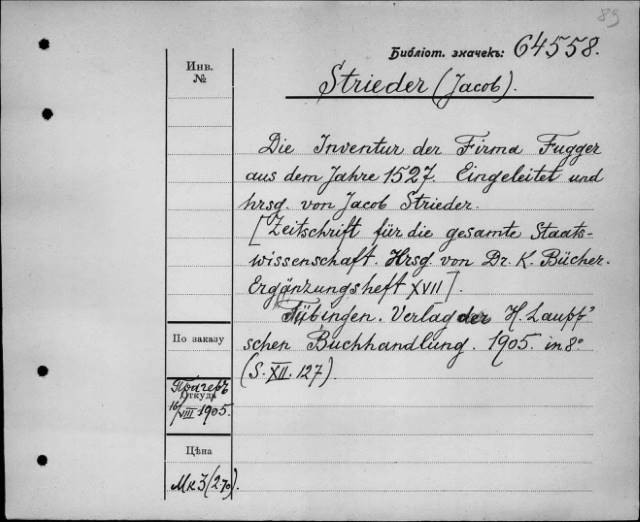 89
Библіот. значекъ: 64558.
Инв.
№
Strieder (Jacob).
Die Inventur der Firma Fugger
aus dem Jahre 1527. Eingeleitet und
hrsg. von Jacob Strieder.
[Zeitschrift für die gesamte Staats-
wissenschaft. Hrsg. von Dr. K. Bücher.
Ergänzungsheft XVII].
Tübingen. Verlag der H. Laupp'
schen Buchhandlung. 1905. in 8°
(S. XII. 127).
По заказу
Прагеръ
Откуда
16/VIII 1905.
Цѣна
Мк 3 (2.70).